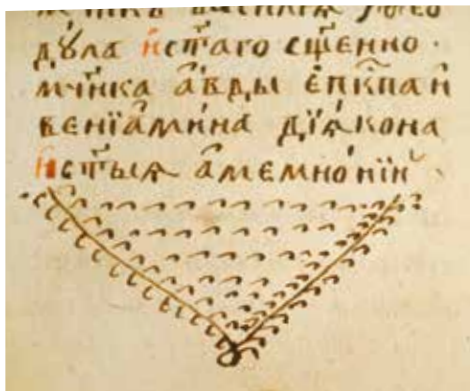 дꙋла и҆ст҃аго сщ҃енно·
мч҃нка а҆́вды є҆пк҃па и҆
венїами́на дїѧ́кона
и҆ст҃ыѧ а҆мемно́нїи